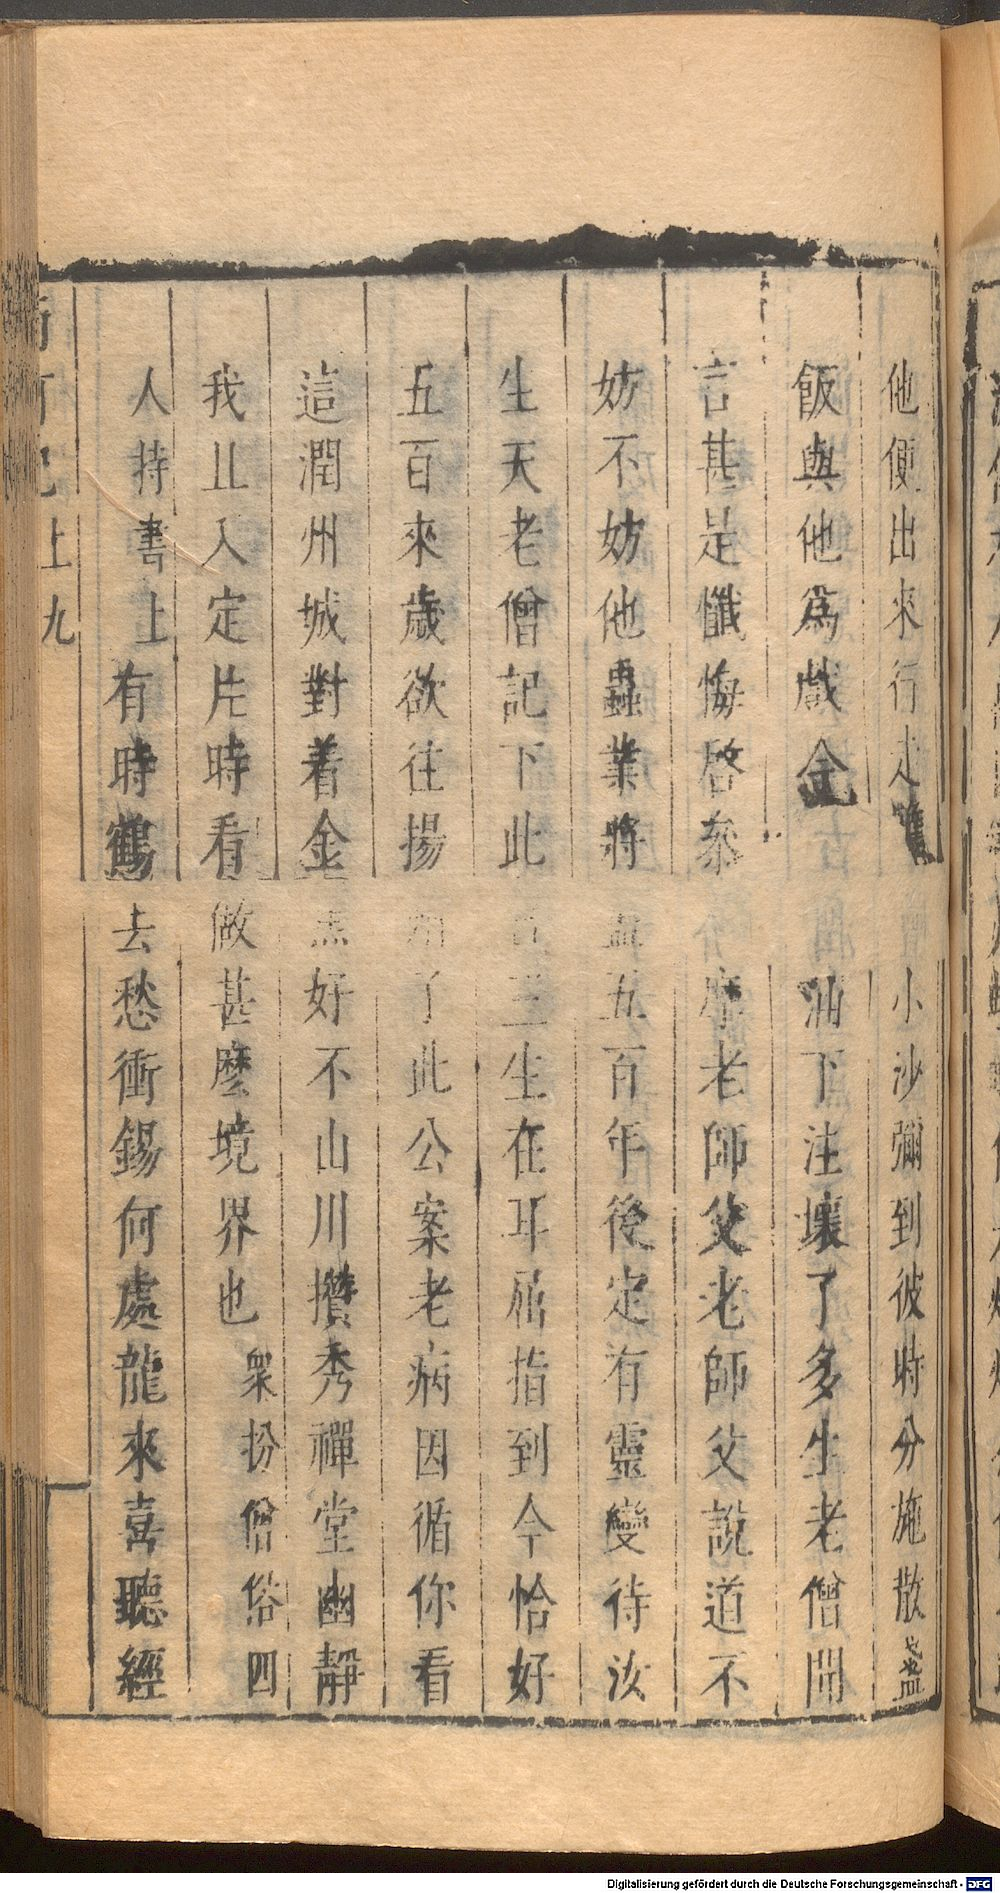 他便出來行走小沙彌到彼時分施散盞
飯與他爲戲金油下注壞了多生老僧開
言甚是懺悔啓泰摩老師父老師父說道不
妨不妨他蟲業將五百年後定有靈變待汝
生天老僧記下此三生在耳屈指到今恰好
五百來歲欲往揚了此公案老病因循你看
這潤州城對着金焦好不山川攢秀禪堂幽靜
我止入定片時看做甚麼境界也衆扮僧俗四
人持書上有時鶴去愁衝錫何處龍來喜聽經
上九
Digitalisierung gefördert durch die Deutsche Forschungsgemeinschaft - DFG